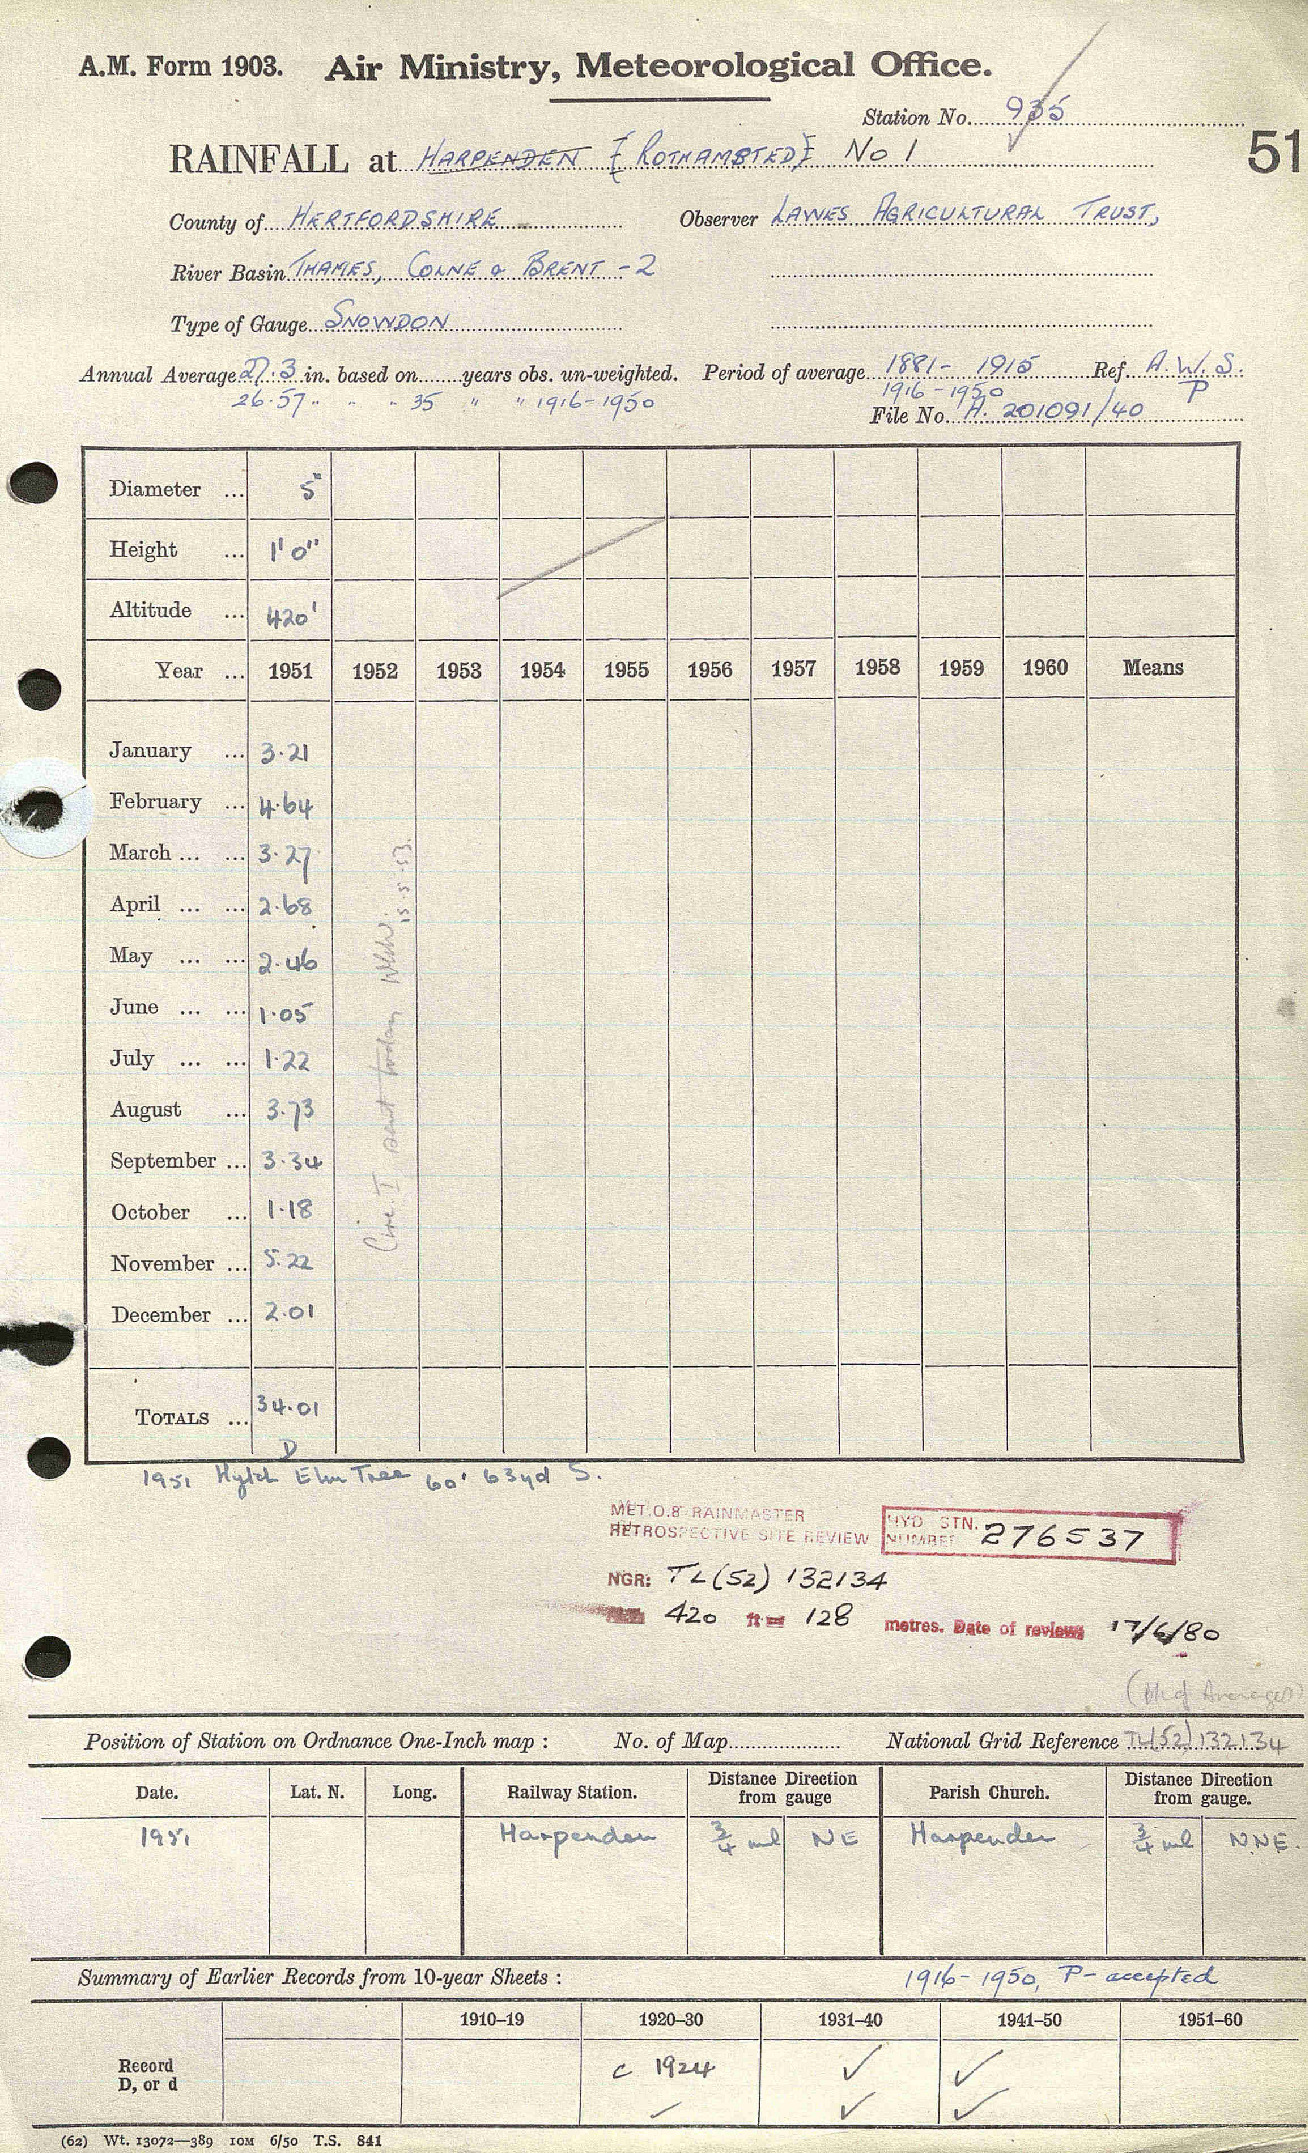 A.M. Form 1903. Air Ministry, Meteorological Office.
Station No. 935
51
RAINFALL at HARPENDEN [ROTHAMSTED] No 1
County of HERTFORDSHIRE Observer LAWES AGRICULTURAL TRUST,
River Basin THAMES, COLNE & BRENT - 2
Type of Gauge SNOWDON
Annual Average 27.3 in. based on years obs. un-weighted. Period of average 1881 - 1915 Ref. A.W.S.
26.57 " " " 35 " " 1916-1950 1916-1950 P
File No. A. 201091/40
Diameter ... 5"
Height ... 1' 0"
Altitude ... 420'
Year ... 1951 1952 1953 1954 1955 1956 1957 1958 1959 1960 Means
January ... 3.21
February ... 4.64
March ... ... 3.27
April ... ... 2.68
May ... ... 2.46
June ... ... 1.05
July ... ... 1.22
August ... 3.73
September ... 3.34
October ... 1.18
November ... 5.22
December ... 2.01
Circ. I sent today 15.5.53.
TOTALS ... 34.01
D
1951 Elm Tree 60' 63yd S.
MET.O.8 RAINMASTER
RETROSPECTIVE SITE REVIEW
HYD STN. NUMBER 276537
NGR: TL(52) 132134
420 ft = 128 metres. Date of review 17/6/80
Position of Station on Ordnance One-Inch map : No. of Map National Grid Reference TL(52)132134
Date. Lat. N. Long. Railway Station. Distance Direction from gauge Parish Church. Distance Direction from gauge.
1951 Harpenden 3/4 ml NE Harpenden 3/4 ml NNE.
Summary of Earlier Records from 10-year Sheets : 1916-1950, P-accepted
1910–19 1920–30 1931–40 1941–50 1951–60
Record D, or d c 1924 ✓ ✓
✓ ✓ ✓
(62) Wt. 13072—389 10M 6/50 T.S. 841